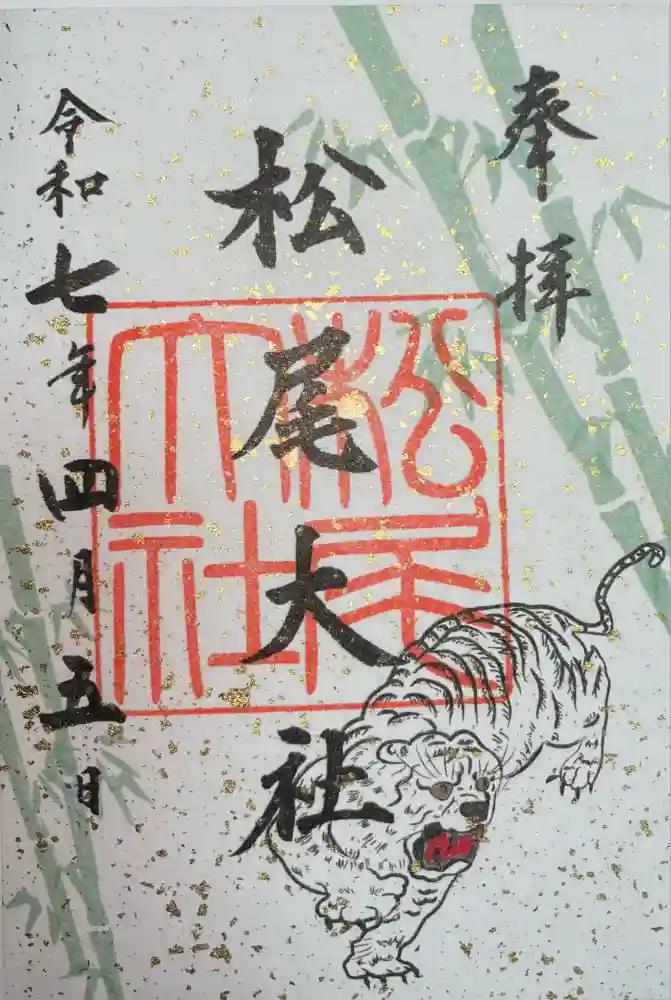 奉拝
松尾大社
松尾大社
令和七年四月五日